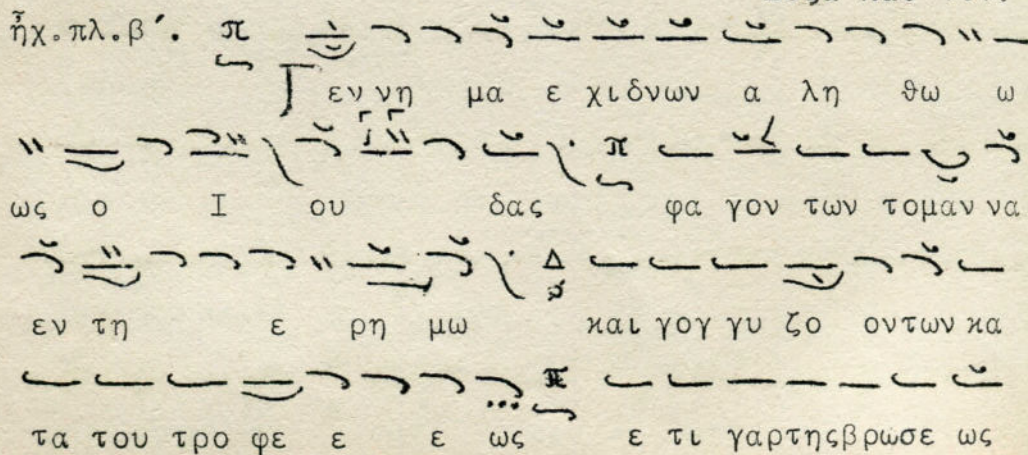 ἦχ. πλ. β΄. π
Γεν νη μα ε χι δνων α λη θω ω
ως ο Ι ου δας π φα γον των το μαν να
εν τη ε ρη μω Δ και γογ γυ ζο οντων κα
τα του τρο φε ε ε ως π ε τι γαρ της βρωσε ως